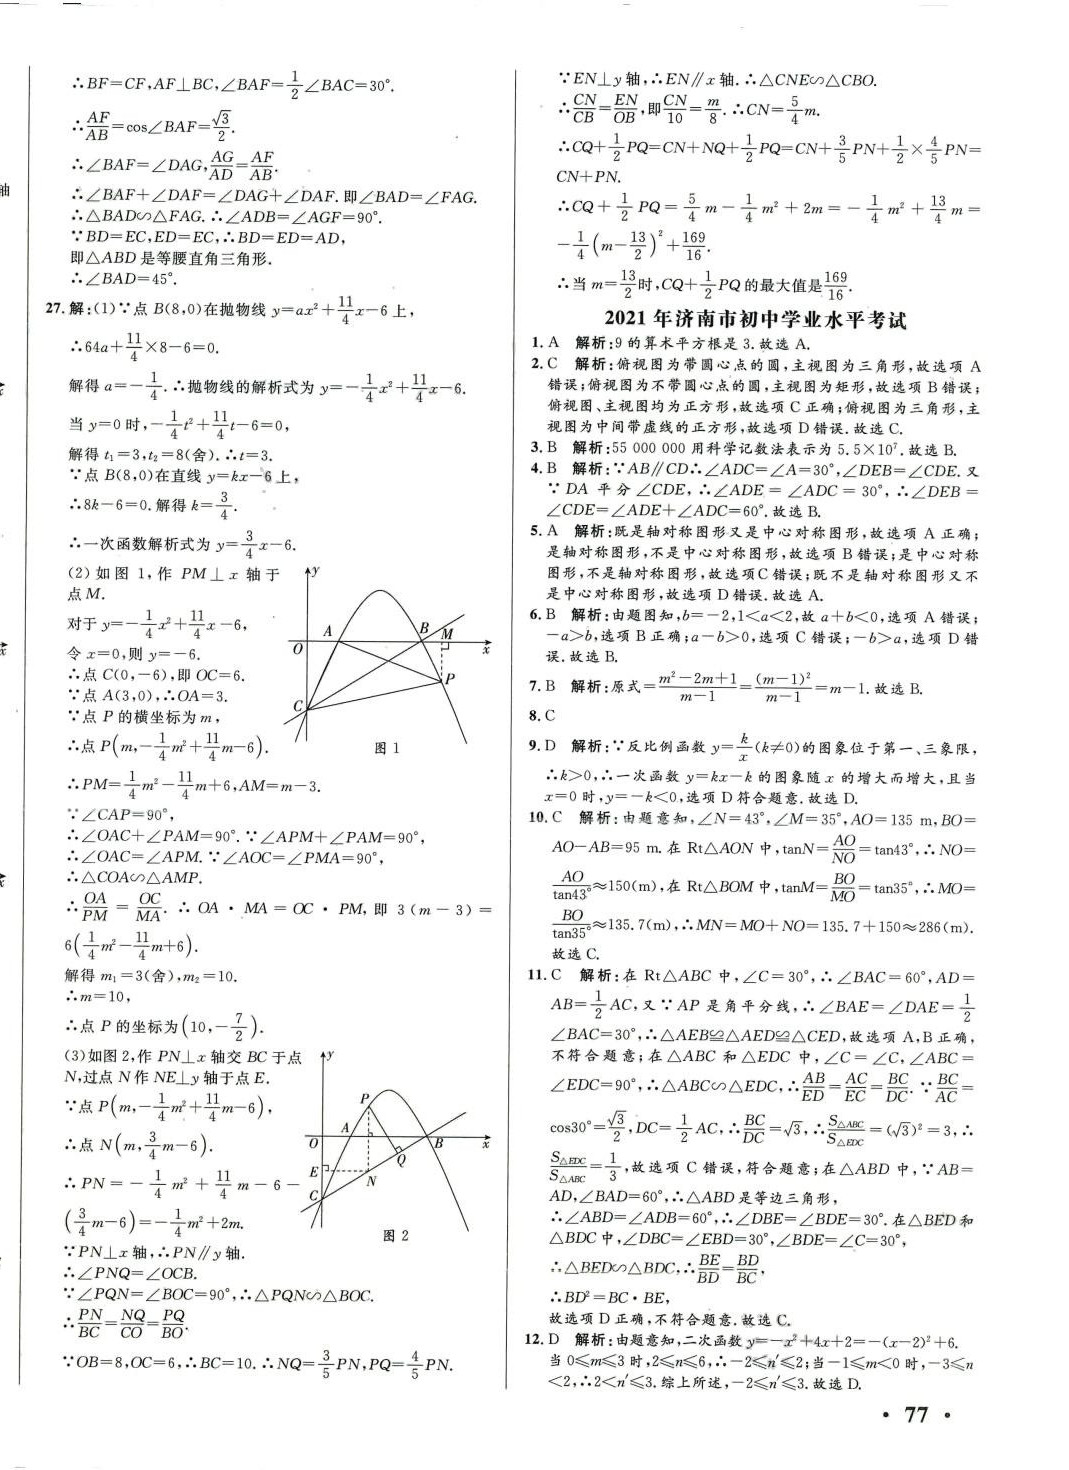 ∴BF=CF,AF⊥BC,∠BAF=1/2∠BAC=30°.
∴AF/AB=cos∠BAF=√3/2.
∴∠BAF=∠DAG,AG/AD=AF/AB.
∴∠BAF+∠DAF=∠DAG+∠DAF.即∠BAD=∠FAG.
∴△BAD∽△FAG.∴∠ADB=∠AGF=90°.
∵BD=EC,ED=EC,∴BD=ED=AD,
即△ABD是等腰直角三角形.
∴∠BAD=45°.
27.解:(1)∵点B(8,0)在抛物线y=ax²+11/4x-6上,
∴64a+11/4×8-6=0.
解得a=-1/4.∴抛物线的解析式为y=-1/4x²+11/4x-6.
当y=0时,-1/4t²+11/4t-6=0,
解得t₁=3,t₂=8(舍).∴t=3.
∵点B(8,0)在直线y=kx-6上,
∴8k-6=0.解得k=3/4.
∴一次函数解析式为y=3/4x-6.
(2)如图1,作PM⊥x轴于
点M.
对于y=-1/4x²+11/4x-6,
令x=0,则y=-6.
∴点C(0,-6),即OC=6.
∵点A(3,0),∴OA=3.
∵点P的横坐标为m,
∴点P(m,-1/4m²+11/4m-6).
y
A
B
M
O
x
P
C
图1
∴PM=1/4m²-11/4m+6,AM=m-3.
∵∠CAP=90°,
∴∠OAC+∠PAM=90°.∵∠APM+∠PAM=90°,
∴∠OAC=∠APM.∵∠AOC=∠PMA=90°,
∴△COA∽△AMP.
∴OA/PM=OC/MA.∴OA·MA=OC·PM,即3(m-3)=
6(1/4m²-11/4m+6).
解得m₁=3(舍),m₂=10.
∴m=10,
∴点P的坐标为(10,-7/2).
(3)如图2,作PN⊥x轴交BC于点
N,过点N作NE⊥y轴于点E.
∵点P(m,-1/4m²+11/4m-6),
∴点N(m,3/4m-6).
∴PN=-1/4m²+11/4m-6-
(3/4m-6)=-1/4m²+2m.
y
P
O
A
B
x
Q
E
N
C
图2
∵PN⊥x轴,∴PN∥y轴.
∴∠PNQ=∠OCB.
∵∠PQN=∠BOC=90°,∴△PQN∽△BOC.
∴PN/BC=NQ/CO=PQ/BO.
∵OB=8,OC=6,∴BC=10.∴NQ=3/5PN,PQ=4/5PN.
∵EN⊥y轴,∴EN∥x轴.∴△CNE∽△CBO.
∴CN/CB=EN/OB,即CN/10=m/8.∴CN=5/4m.
∴CQ+1/2PQ=CN+NQ+1/2PQ=CN+3/5PN+1/2×4/5PN=
CN+PN.
∴CQ+1/2PQ=5/4m-1/4m²+2m=-1/4m²+13/4m=
-1/4(m-13/2)²+169/16.
∴当m=13/2时,CQ+1/2PQ的最大值是169/16.
2021年济南市初中学业水平考试
1.A 解析:9的算术平方根是3.故选A.
2.C 解析:俯视图为带圆心点的圆,主视图为三角形,故选项A
错误;俯视图为不带圆心点的圆,主视图为矩形,故选项B错误;
俯视图、主视图均为正方形,故选项C正确;俯视图为三角形,主
视图为中间带虚线的正方形,故选项D错误.故选C.
3.B 解析:55 000 000用科学记数法表示为5.5×10⁷.故选B.
4.B 解析:∵AB∥CD∴∠ADC=∠A=30°,∠DEB=∠CDE.又
∵DA平分∠CDE,∴∠ADE=∠ADC=30°,∴∠DEB=
∠CDE=∠ADE+∠ADC=60°.故选B.
5.A 解析:既是轴对称图形又是中心对称图形,故选项A正确;
是轴对称图形,不是中心对称图形,故选项B错误;是中心对称
图形,不是轴对称图形,故选项C错误;既不是轴对称图形又不
是中心对称图形,故选项D错误.故选A.
6.B 解析:由题图知,b=-2,1<a<2,故a+b<0,选项A错误;
-a>b,选项B正确;a-b>0,选项C错误;-b>a,选项D错
误.故选B.
7.B 解析:原式=(m²-2m+1)/(m-1)=(m-1)²/(m-1)=m-1.故选B.
8.C
9.D 解析:∵反比例函数y=k/x(k≠0)的图象位于第一、三象限,
∴k>0,∴一次函数y=kx-k的图象随x的增大而增大,且当
x=0时,y=-k<0,选项D符合题意.故选D.
10.C 解析:由题意知,∠N=43°,∠M=35°,AO=135 m,BO=
AO-AB=95 m.在Rt△AON中,tanN=AO/NO=tan43°,∴NO=
AO/tan43°≈150(m),在Rt△BOM中,tanM=BO/MO=tan35°,∴MO=
BO/tan35°≈135.7(m),∴MN=MO+NO=135.7+150≈286(m).
故选C.
11.C 解析:在Rt△ABC中,∠C=30°,∴∠BAC=60°,AD=
AB=1/2AC,又∵AP是角平分线,∴∠BAE=∠DAE=1/2
∠BAC=30°,∴△AEB≌△AED≌△CED,故选项A,B正确,
不符合题意;在△ABC和△EDC中,∠C=∠C,∠ABC=
∠EDC=90°,∴△ABC∽△EDC,∴AB/ED=AC/EC=BC/DC.∵BC/AC=
cos30°=√3/2,DC=1/2AC,∴BC/DC=√3,∴S△ABC/S△EDC=(√3)²=3,∴
S△EDC/S△ABC=1/3,故选项C错误,符合题意;在△ABD中,∵AB=
AD,∠BAD=60°,∴△ABD是等边三角形,
∴∠ABD=∠ADB=60°,∴∠DBE=∠BDE=30°.在△BED和
△BDC中,∠DBC=∠EBD=30°,∠BDE=∠C=30°,
∴△BED∽△BDC,∴BE/BD=BD/BC,
∴BD²=BC·BE,
故选项D正确,不符合题意.故选C.
12.D 解析:由题意知,二次函数y=-x²+4x+2=-(x-2)²+6.
当0≤m≤3时,2≤n≤6,∴-2≤n′≤2;当-1≤m<0时,-3≤n
<2,∴2<n′≤3.综上所述,-2≤n′≤3.故选D.
·77·